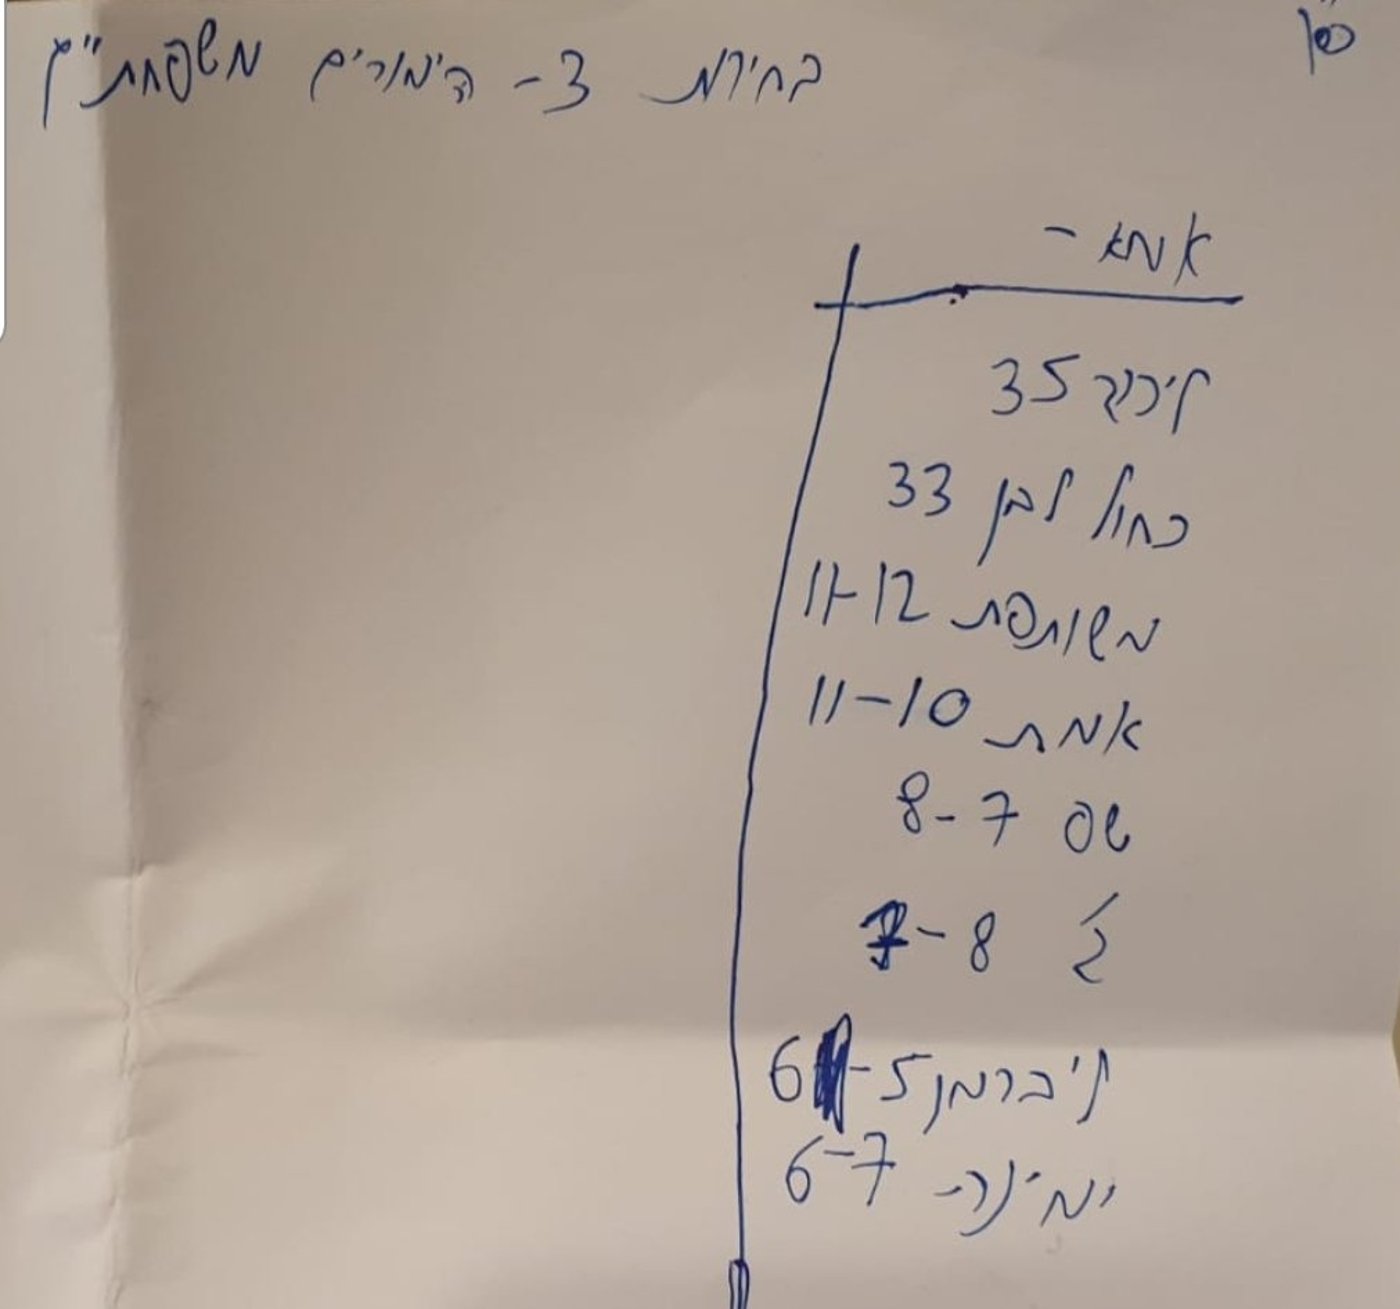 בס"ד
בחירות 3- הימורים משפחת"ץ
אמא -
ליכוד 35
כחול לבן 33
משותפת 11-12
אמת 11-10
שס 8-7
ג' 7-8
ליברמן 6-5
ימינה- 6-7